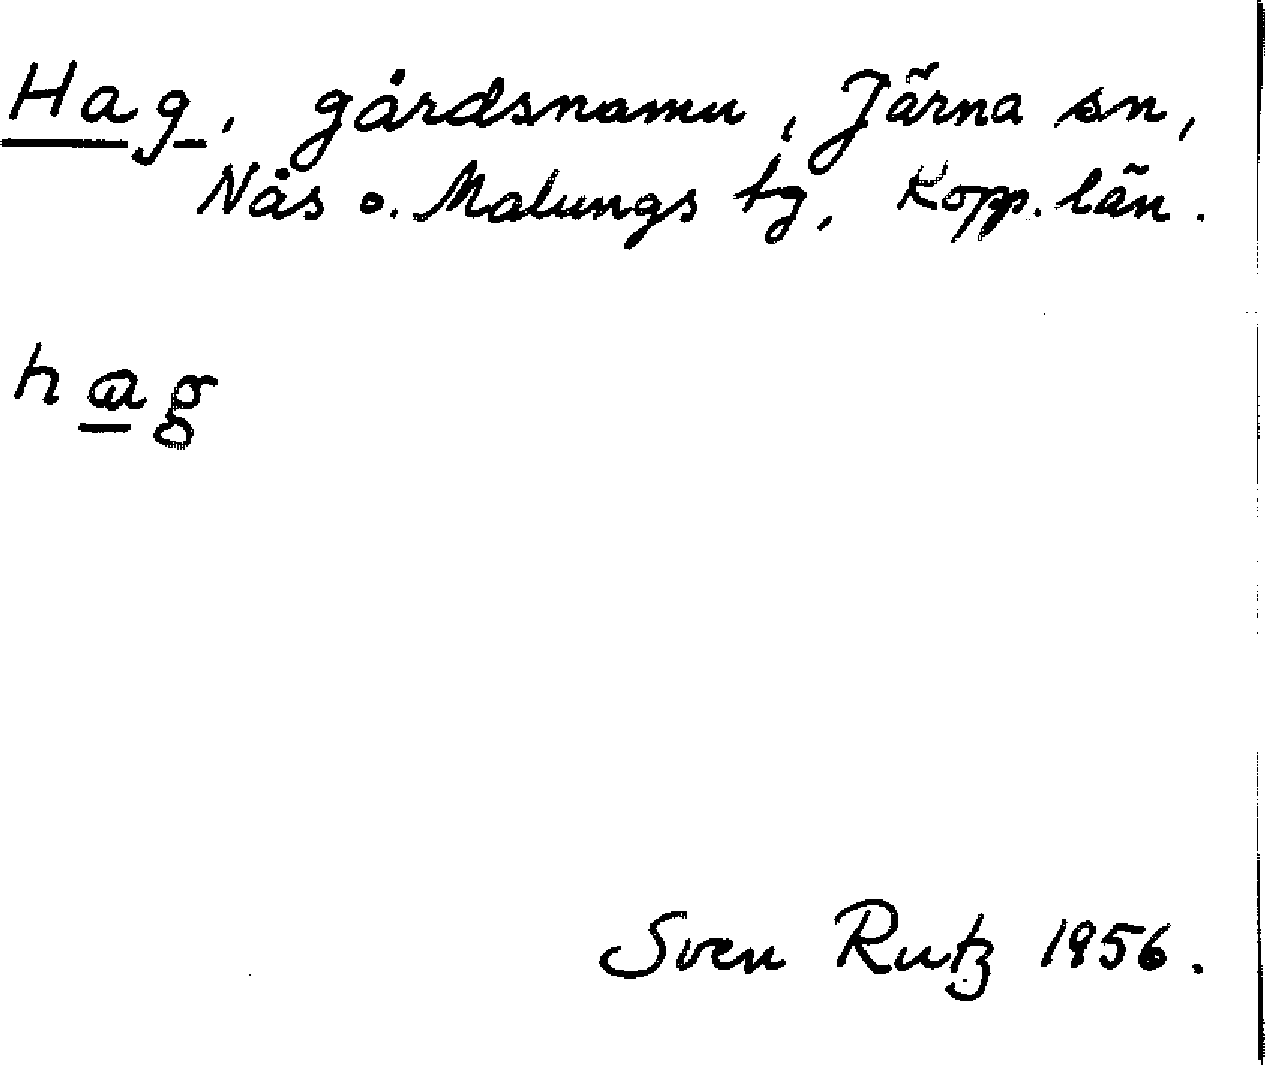 Hag, gårdsnamn, Järna sn,
Nås o. Malungs tg, Kopp. län.
hag
Sven Rutz 1956.